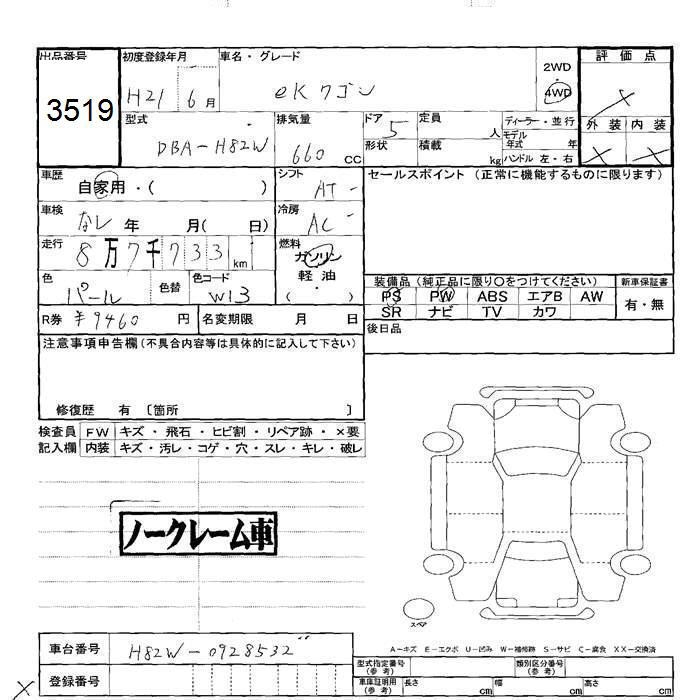 出品番号 初度登録年月 車名・グレード 2WD 評価点
3519 H21 6月 eKワゴン ・
4WD ×
型式 排気量 ドア 定員 ディーラー・並行 外装 内装
DBA-H82W 660 CC 5 人 モデル年式 年 × ×
形状 積載 kg ハンドル 左・右
車歴 シフト セールスポイント (正常に機能するものに限ります)
自家用・( ) AT
車検 冷房
なし 年 月( 日) AC
走行 燃料
8万7千733km ガソリン
・
色 色替 色コード 軽油 装備品 (純正品に限り○をつけてください) 新車保証書
パール W13 ( ) PS PW ABS エアB AW 有・無
SR ナビ TV カワ
R券 ¥9460 円 名変期限 月 日 後日品
注意事項申告欄(不具合内容等は具体的に記入して下さい)
修復歴 有 〔箇所 〕
検査員 FW キズ・飛石・ヒビ割・リペア跡・×要
記入欄 内装 キズ・汚レ・コゲ・穴・スレ・キレ・破レ
ノークレーム車
スペア
A-キズ E-エクボ U-凹み W-補修跡 S-サビ C-腐食 XX-交換済
車台番号 H82W-0928532 型式指定番号(参考) 類別区分番号(参考)
登録番号 車庫証明用(参考) 長さ cm 幅 cm 高さ cm
×